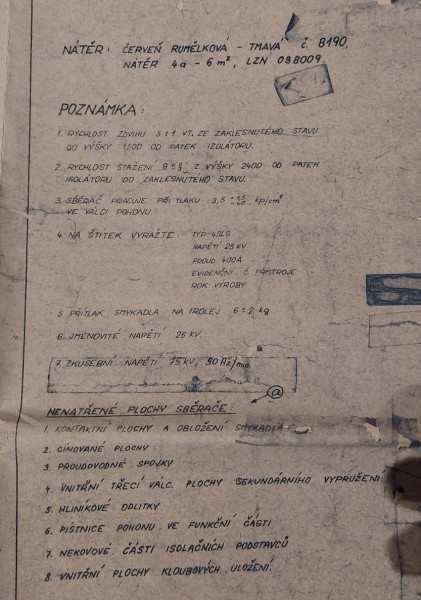 NÁTĚR: ČERVEŇ RUMĚLKOVÁ - TMAVÁ č. 8190,
NÁTĚR 4a - 6m², LZN 088009
POZNÁMKA:
1. RYCHLOST ZDVIHU 5±1 VT. ZE ZAKLESNUTÉHO STAVU
DO VÝŠKY 1500 OD PATEK IZOLÁTORU.
2. RYCHLOST STAŽENÍ Z VÝŠKY 2400 OD PATEK
IZOLÁTORU DO ZAKLESNUTÉHO STAVU.
3. SBĚRAČ PRACUJE PŘI TLAKU 3,5 kp/cm²
VE VÁLCI POHONU.
4. NA ŠTÍTEK VYRAZTE TYP 4SLS
NAPĚTÍ 25 KV
PROUD 400A
EVIDENČNÍ Č. PŘÍSTROJE
ROK VÝROBY
5. PŘÍTLAK SMYKADLA NA TROLEJ 6±2 kg
6. JMENOVITÉ NAPĚTÍ 25 KV
7. ZKUŠEBNÍ NAPĚTÍ 75KV, 50Hz/min
a
NENATŘENÉ PLOCHY SBĚRAČE:
1. KONTAKTNÍ PLOCHY A OBLOŽENÍ SMYKADLA
2. CÍNOVANÉ PLOCHY
3. PROUDOVODNÉ SPOJKY
4. VNITŘNÍ TŘECÍ VÁLC. PLOCHY SEKUNDÁRNÍHO VYPRUŽENÍ
5. HLINÍKOVÉ ODLITKY
6. PÍSTNICE POHONU VE FUNKČNÍ ČÁSTI
7. NEKOVOVÉ ČÁSTI ISOLAČNÍCH PODSTAVCŮ
8. VNITŘNÍ PLOCHY KLOUBOVÝCH ULOŽENÍ.